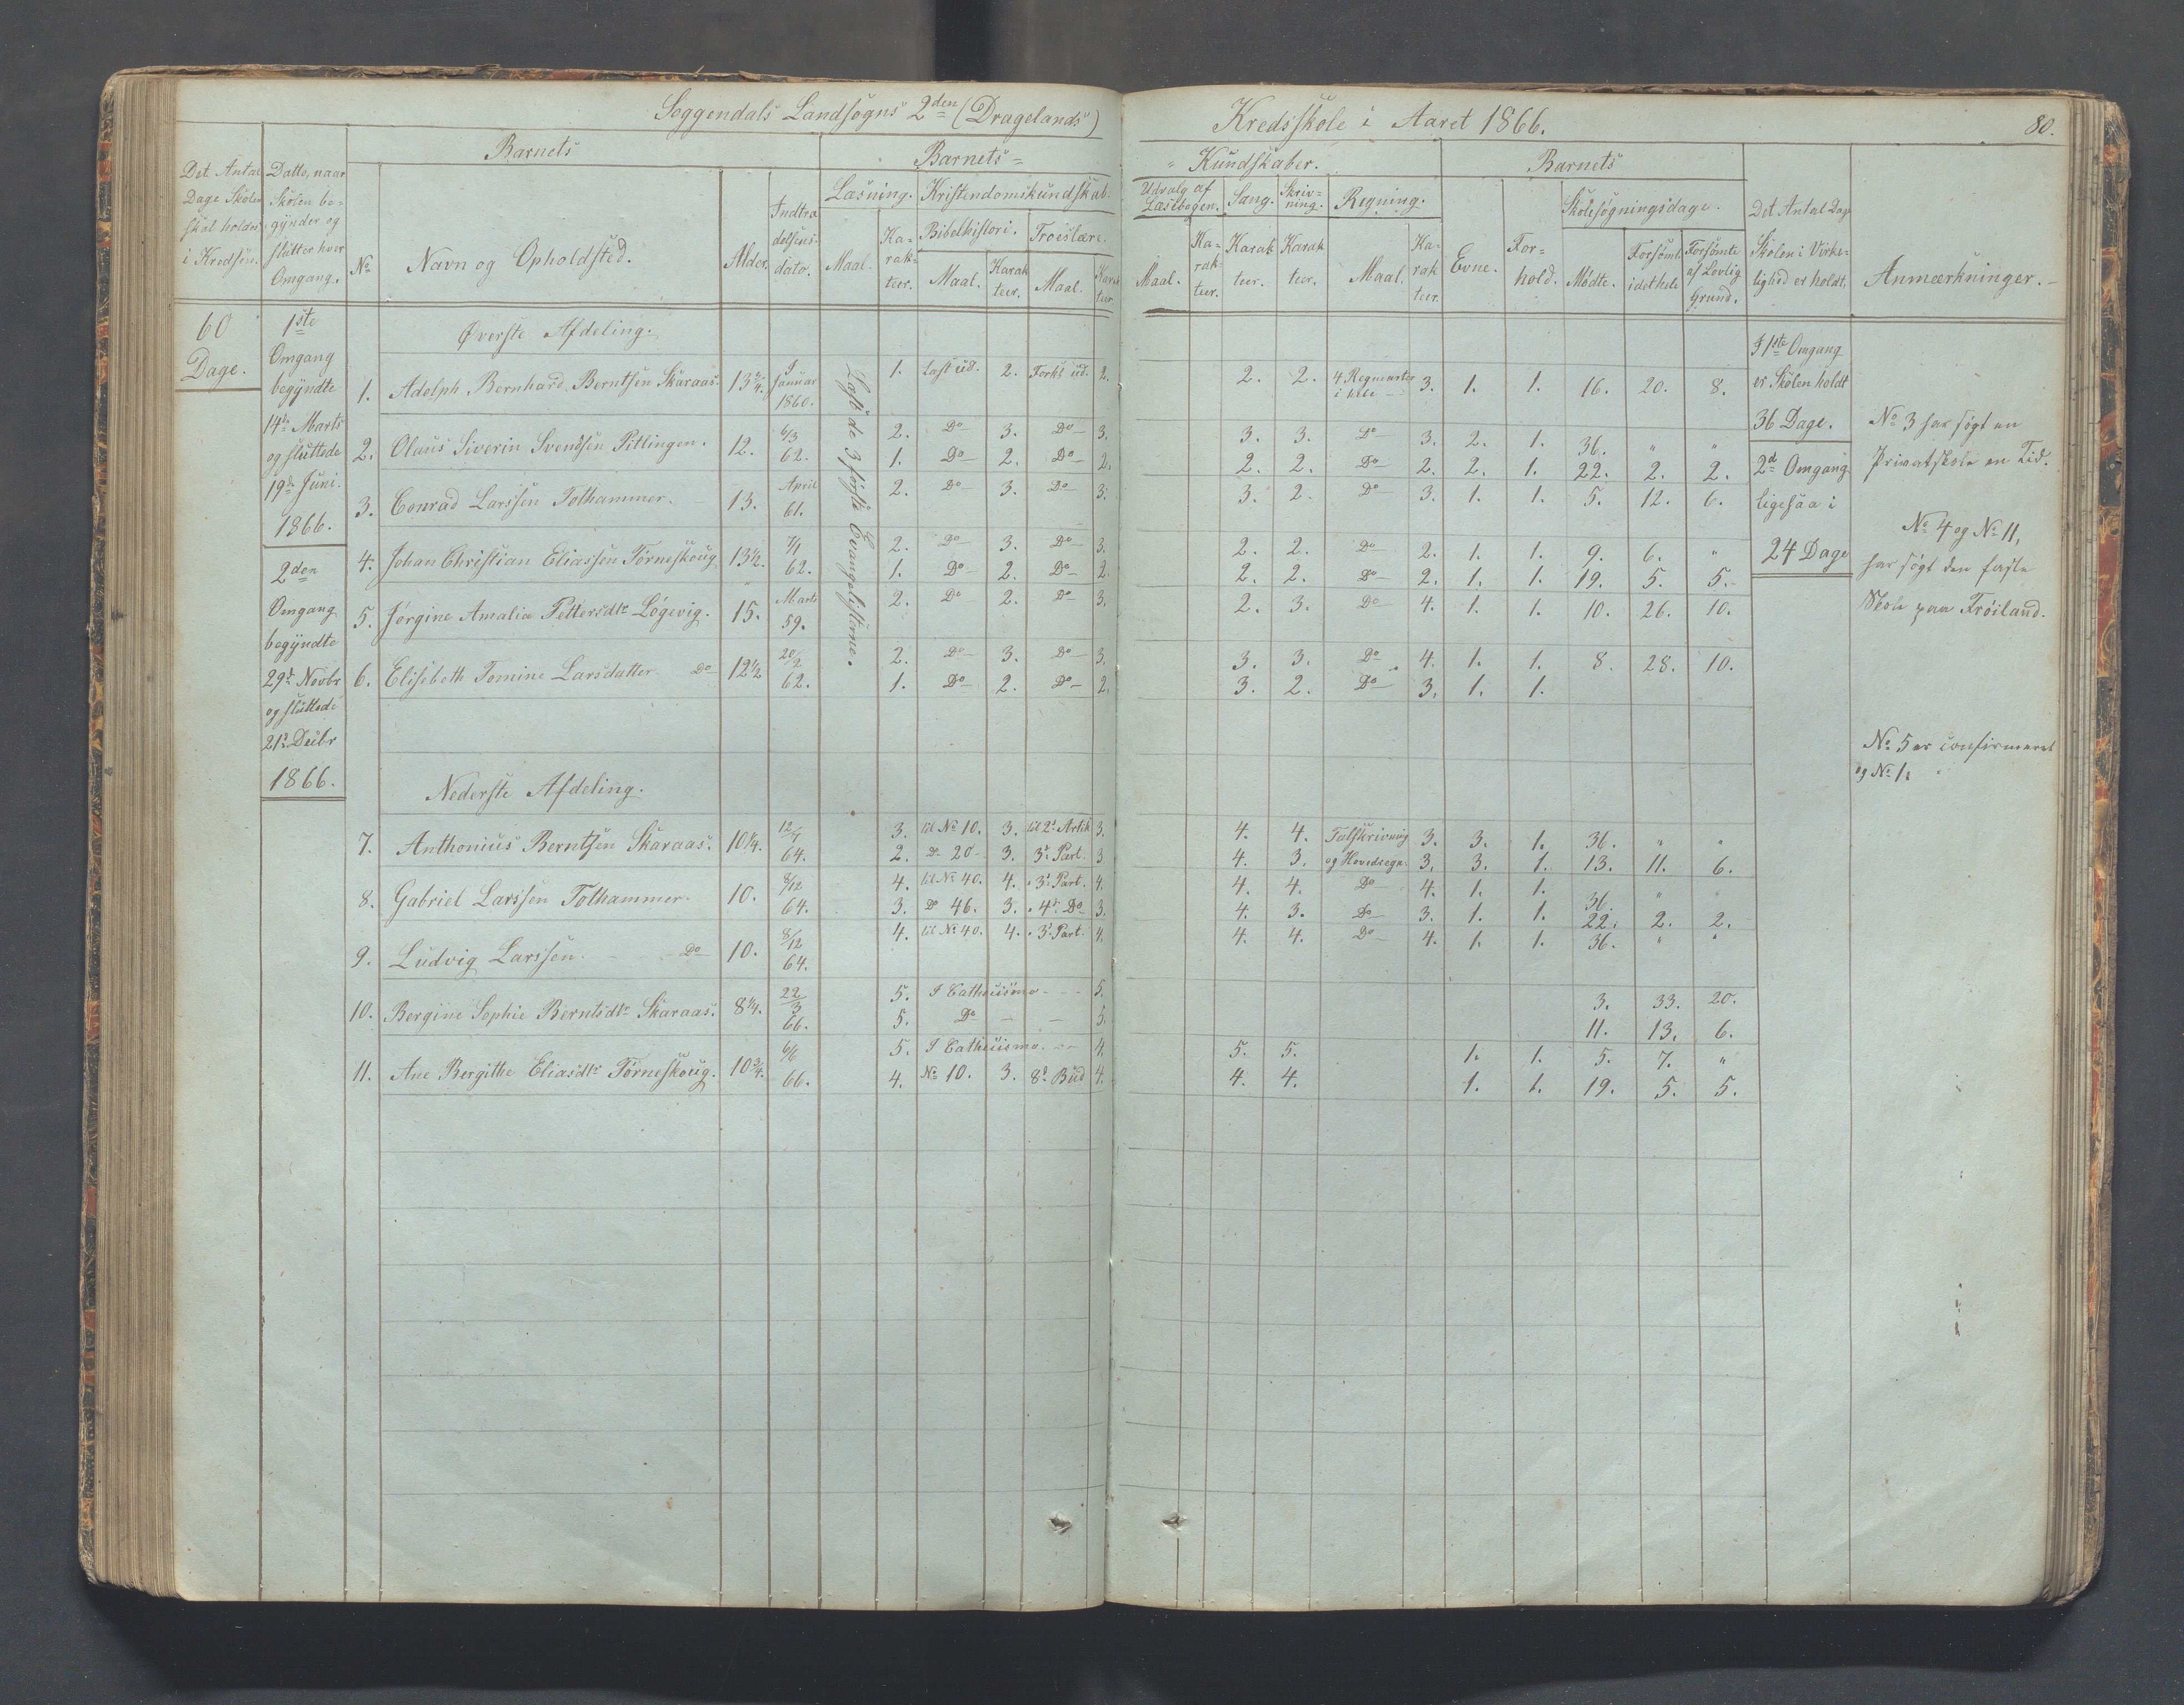 Soggendals Landsogns 2den (Dragelands) Kredsskole i Aaret 1866. 80.
Barnets Barnets= Kundskaber. Barnets
Det Antal Dage Skolen skal holdes i Kredsen.
Datto, naar Skolen begynder og slutter hver Omgang.
No Navn og Opholdsted. Alder. Indtrædelsens dato.
Læsning. Maal. Karakteer.
Kristendomskundskab. Bibelhistori. Maal. Karakteer. Troeslære. Maal. Karakteer.
Udvalg af Læsebogen. Maal. Karakteer.
Sang. Karakteer. Skrivning. Karakteer.
Regning. Maal. Karakteer.
Evne. Forhold.
Skolesøgningsdage. Mødte. Forsømt i det hele Forsømte af Lovlig Grund.
Det Antal Dage Skolen i Virkelighed er holdt. Anmærkninger.
60 Dage.
1ste Omgang begyndte 14de Marts og sluttede 19de Juni. 1866.
2den Omgang begyndte 29d Novbr og sluttede 21d Decbr 1866.
Øverste Afdeling.
Læst de 3 første Evangelisterne.
1. Adolph Bernhard Berntsen Skaraas. 13 3/4. Januar 1860. 1. Læst ud. 2. Forkl ud. 2. 2. 2. 4 Regnearter i hele 3. 1. 1. 16. 20. 8.
2. Olaus Siverin Svendsen Pitlingen. 12. 6/3 62. 2. Do 3. Do 3. 3. 3. Do 3. 2. 1. 36. " "
1. Do 2. Do 2. 2. 2. Do 2. 2. 1. 22. 2. 2.
3. Conrad Larssen Tothammer. 13. April 61. 2. Do 3. Do 3. 3. 2. Do 3. 1. 1. 5. 12. 6.
4. Johan Christian Eliassen Torneskoug. 13 1/2. 7/1 62. 2. Do 3. Do 3. 2. 2. Do 2. 1. 1. 9. 6. "
1. Do 2. Do 2. 2. 2. Do 2. 1. 1. 19. 5. 5.
5. Jørgine Amalia Pettersdtr Løgevig. 15. Marts 59. 2. Do 2. Do 3. 2. 3. Do 4. 1. 1. 10. 26. 10.
6. Elisebeth Tomine Larsdatter Do 12 1/2 20/2 62. 2. Do 3. Do 3. 3. 3. Do 4. 1. 1. 8. 28. 10.
1. Do 2. Do 2. 3. 2. Do 3. 1. 1.
Nederste Afdeling.
7. Anthonius Berntsen Skaraas. 10 1/4. 12/7 64. 3. til No 10. 3. til 2d Artik 3. 4. 4. Talskrivning 3. 3. 1. 36. " "
2. Do 20 3. 3d Part. 3 4. 3. og Hovedregn. 3. 3. 1. 13. 11. 6.
8. Gabriel Larssen Tothammer. 10. 8/12 64. 4. til No 40. 4. 3d Part. 4. 4. 4. Do 4. 1. 1. 36. " "
3. Do 46. 3. 4d Do 3. 4. 3. Do 3. 1. 1. 22. 2. 2.
9. Ludvig Larssen. Do 10. 8/12 64. 4. til No 40. 4. 3d Part. 4. 4. 4. Do 4. 1. 1. 36. " "
10. Bergine Sophie Berntsdtr Skaraas. 8 1/4. 22/3 66. 5. I Cathecismo 5. 3. 33. 20.
5. Do 5. 11. 13. 6.
11. Ane Bergitte Eliasdtr Torneskoug. 10 3/4. 6/6 66. 5. I Cathecismo. 4. 5. 5. 1. 1. 5. 7. "
4. No 10. 3. 8d Bud 4. 4. 4. 1. 1. 19. 5. 5.
I 1ste Omgang er Skolen holdt 36 Dage.
2d Omgang ligesaa i 24 Dage
No 3 har søgt en Privatskole en Tid.
No 4 og No 11, har søgt den faste Skole paa Frøiland.
No 5 er confirmeret og No 1.